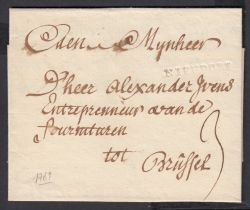 Eden Mynheer
D'heer Alexander Ivens
Entreprenneur van de
fournituren
tot
Brüssel
3
1769